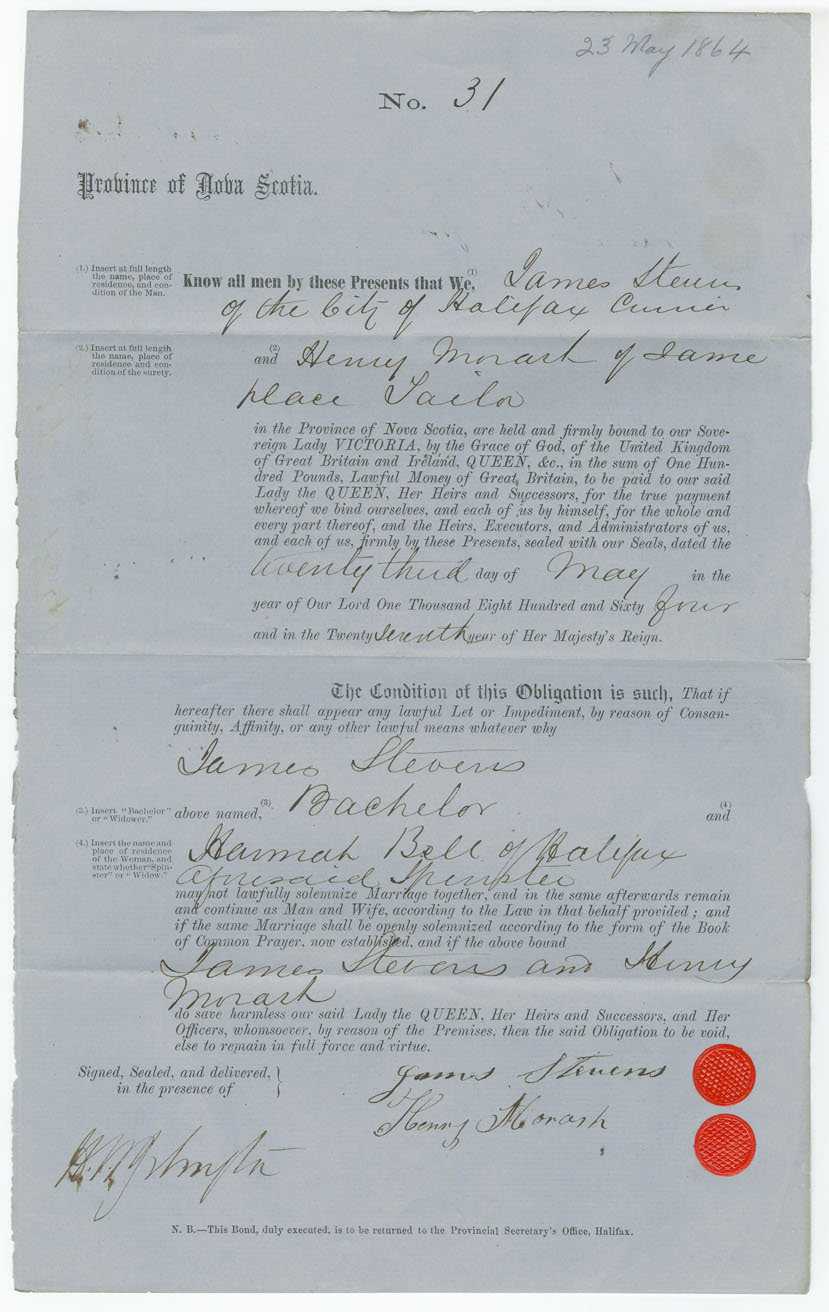 23 May 1864
No. 31
Province of Nova Scotia.
(1.) Insert at full length
the name, place of
residence, and con-
dition of the Man.
Know all men by these Presents that We, (1) James Stevens
of the City of Halifax Currier
(2.) Insert at full length
the name, place of
residence and con-
dition of the surety.
and (2) Henry Morash of same
place Tailor
in the Province of Nova Scotia, are held and firmly bound to our Sove-
reign Lady VICTORIA, by the Grace of God, of the United Kingdom
of Great Britain and Ireland, QUEEN, &c., in the sum of One Hun-
dred Pounds, Lawful Money of Great Britain, to be paid to our said
Lady the QUEEN, Her Heirs and Successors, for the true payment
whereof we bind ourselves, and each of us by himself, for the whole and
every part thereof, and the Heirs, Executors, and Administrators of us,
and each of us, firmly by these Presents, sealed with our Seals, dated the
twenty third day of May in the
year of Our Lord One Thousand Eight Hundred and Sixty four
and in the Twenty seventh year of Her Majesty's Reign.
The Condition of this Obligation is such, That if
hereafter there shall appear any lawful Let or Impediment, by reason of Consan-
guinity, Affinity, or any other lawful means whatever why
James Stevens
(3.) Insert "Bachelor"
or "Widower."
above named, (3) Bachelor and (4)
(4.) Insert the name and
place of residence
of the Woman, and
state whether "Spin-
ster" or "Widow."
Hannah Bell of Halifax
aforesaid Spinster
may not lawfully solemnize Marriage together, and in the same afterwards remain
and continue as Man and Wife, according to the Law in that behalf provided; and
if the same Marriage shall be openly solemnized according to the form of the Book
of Common Prayer, now established, and if the above bound
James Stevens and Henry
Morash
do save harmless our said Lady the QUEEN, Her Heirs and Successors, and Her
Officers, whomsoever, by reason of the Premises, then the said Obligation to be void,
else to remain in full force and virtue.
Signed, Sealed, and delivered,
in the presence of
James Stevens
Henry Morash
N. B.—This Bond, duly executed, is to be returned to the Provincial Secretary's Office, Halifax.